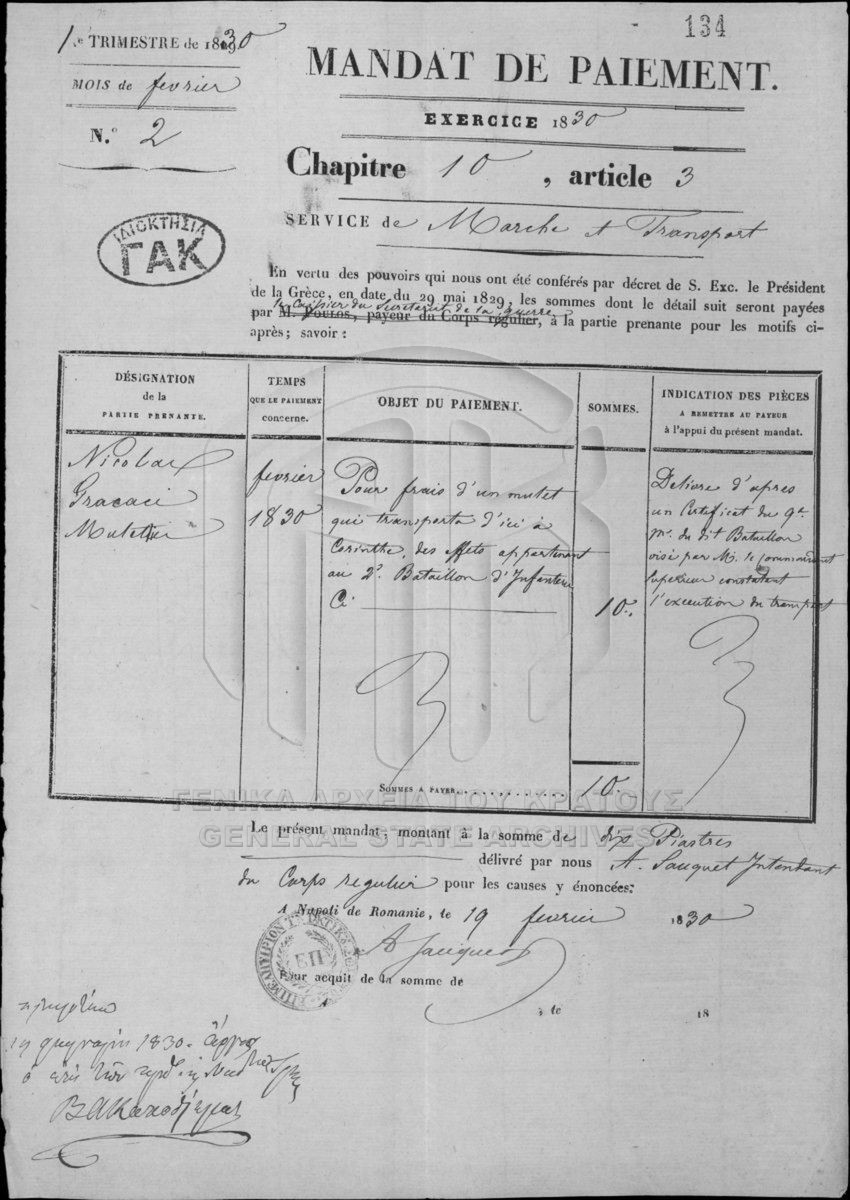 134
1.er TRIMESTRE de 1830
MOIS de fevrier
N.o 2
MANDAT DE PAIEMENT.
EXERCICE 1830
Chapitre 10, article 3
SERVICE de Marche et Transport
ΙΔΙΟΚΤΗΣΙΑ
ΓΑΚ
En vertu des pouvoirs qui nous ont été conférés par décret de S. Exc. le Président
de la Grèce, en date du 29 mai 1829, les sommes dont le détail suit seront payées
le Caissier du Secretariat de la guerre
par M. Poulos, payeur du Corps régulier, à la partie prenante pour les motifs ci-
après; savoir :
DÉSIGNATION
de la
PARTIE PRENANTE.
TEMPS
QUE LE PAIEMENT
concerne.
OBJET DU PAIEMENT.
SOMMES.
INDICATION DES PIÈCES
A REMETTRE AU PAYEUR
à l'appui du présent mandat.
Nicolas
Gracaci
Muletier
fevrier
1830
Pour frais d'un mulet
qui transporta d'ici a
Corinthe, des effets appartenant
au 2.e Bataillon d'Infanterie
Ci
10.
Delivré d'apres
un Certificat du q.er
m.e du dit Bataillon
visé par M. le commandant
Superieur constatant
l'execution du transport
SOMMES A PAYER
10.
ΓΕΝΙΚΑ ΑΡΧΕΙΑ ΤΟΥ ΚΡΑΤΟΥΣ
GENERAL STATE ARCHIVES
Le présent mandat, montant à la somme de dix Piastres
délivré par nous A. Sauquet Intendant
du Corps regulier pour les causes y énoncées.
A Napoli de Romanie, le 19 fevrier 1830
A Sauquet
Pour acquit de la somme de
, le 18
1830